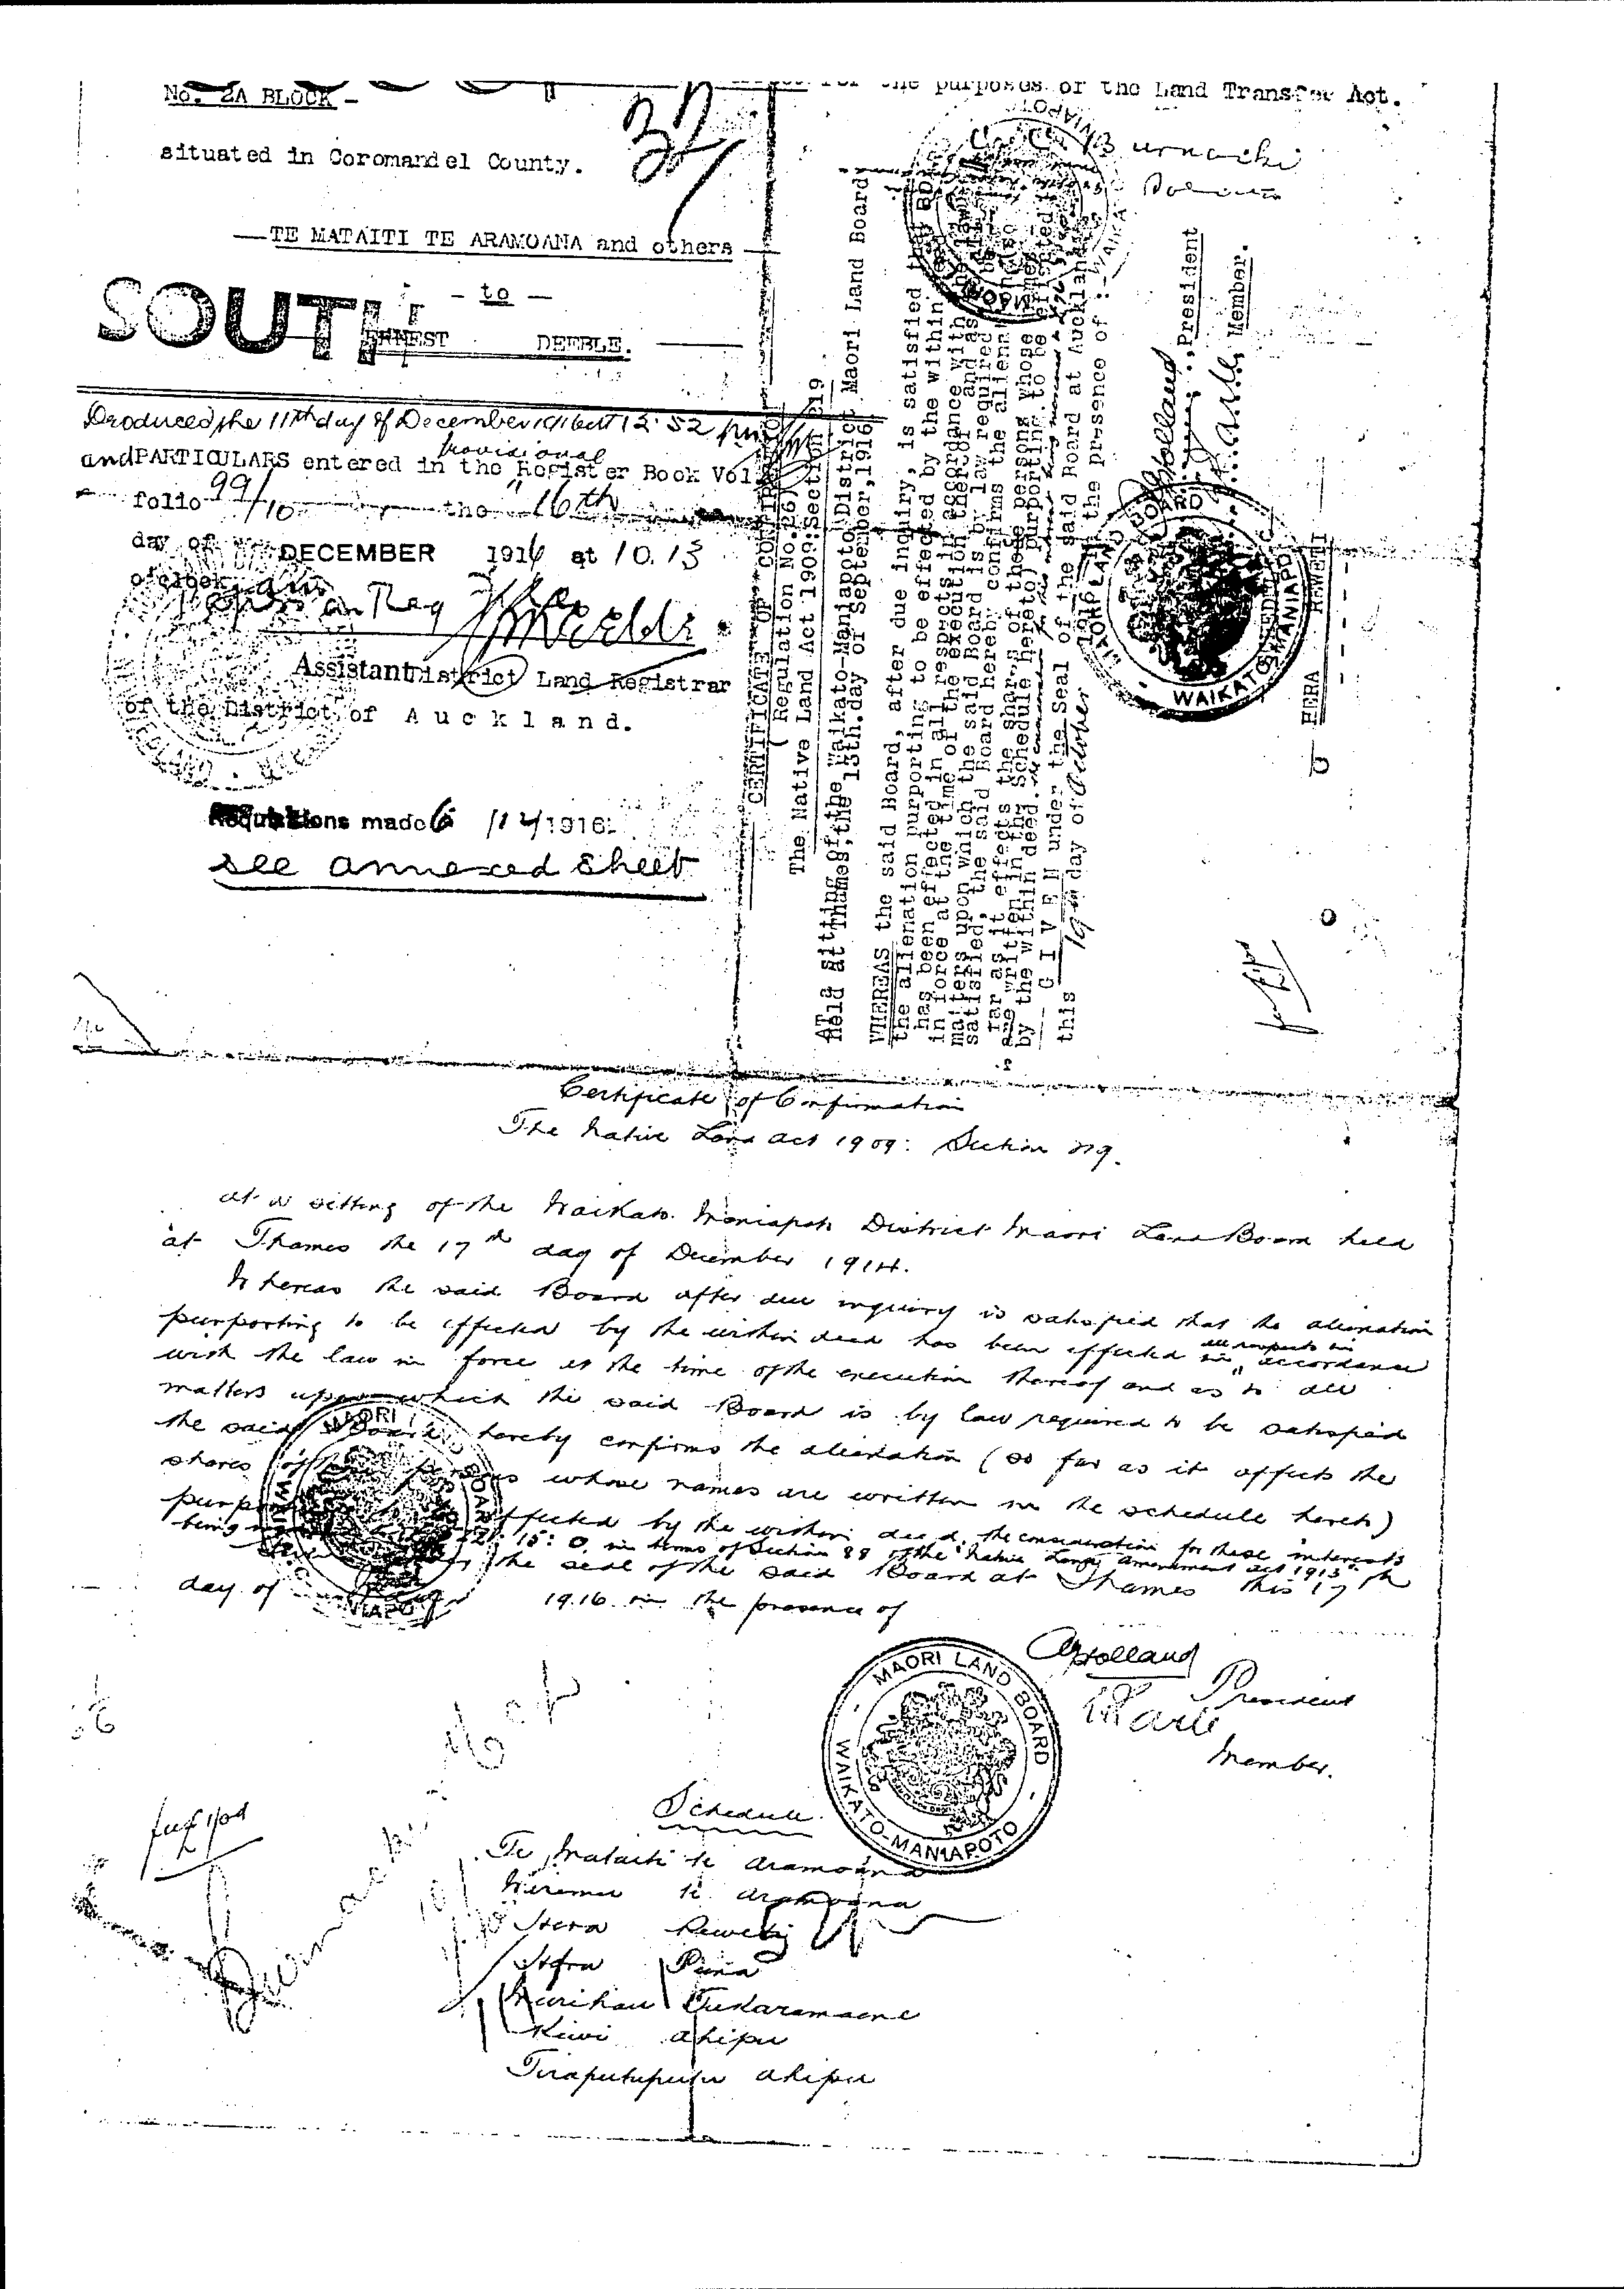 for the purposes of the Land Transfer Act.
No. 2A BLOCK -
situated in Coromandel County.
32
TE MATAITI TE ARAMOANA and others
- to -
SOUTH
ERNEST DEEBLE.
Produced the 11th day of December 1916 at 12.52 pm
and PARTICULARS entered in the Provisional Register Book Vol
folio 99/10 the 16th
day of DECEMBER 1916 at 10.13
o'clock am
Assistant District Land Registrar
of the District of Auckland.
Requisitions made 6/12/1916.
see annexed sheet
CERTIFICATE OF CONFIRMATION
( Regulation No. 26)
The Native Land Act 1909: Section 219.
AT a sitting of the Waikato-Maniapoto District Maori Land Board
held at Thames, the 15th. day of September, 1916
WHEREAS the said Board, after due inquiry, is satisfied that
the alienation purporting to be effected by the within deed
has been effected in all respects in accordance with the law
in force at the time of the execution thereof and as to all
matters upon which the said Board is by law required to be
satisfied, the said Board hereby confirms the alienation (so
far as it effects the shares of those persons whose names
are written in the Schedule hereto) purporting to be effected
by the within deed.
GIVEN under the Seal of the said Board at Auckland
this 19th day of October 1916 in the presence of :-
Holland President
Member.
MAORI LAND BOARD
WAIKATO-MANIAPOTO
HERA REWETI
Certificate of Confirmation
The Native Land Act 1909: Section 219.
At a sitting of the Waikato Maniapoto District Maori Land Board held
at Thames the 17th day of December 1914.
Whereas the said Board after due inquiry is satisfied that the alienation
purporting to be effected by the within deed has been effected in all respects in accordance
with the law in force at the time of the execution thereof and as to all
matters upon which the said Board is by law required to be satisfied
the said Board hereby confirms the alienation (so far as it affects the
shares of those persons whose names are written in the schedule hereto)
effected by the within deed, the consideration for these interests
being 15: 0 in terms of Section 88 of the Native Land Amendment Act 1913
the seal of the said Board at Thames this 17th
day of 1916 in the presence of
Holland
President
Member.
MAORI LAND BOARD
WAIKATO-MANIAPOTO
Schedule
Te Mataiti te Aramoana
Wiremu te Aramoana
Hera Reweti
Hera Puna
Kiwi Ahipu
Tiraputuputu Ahipu